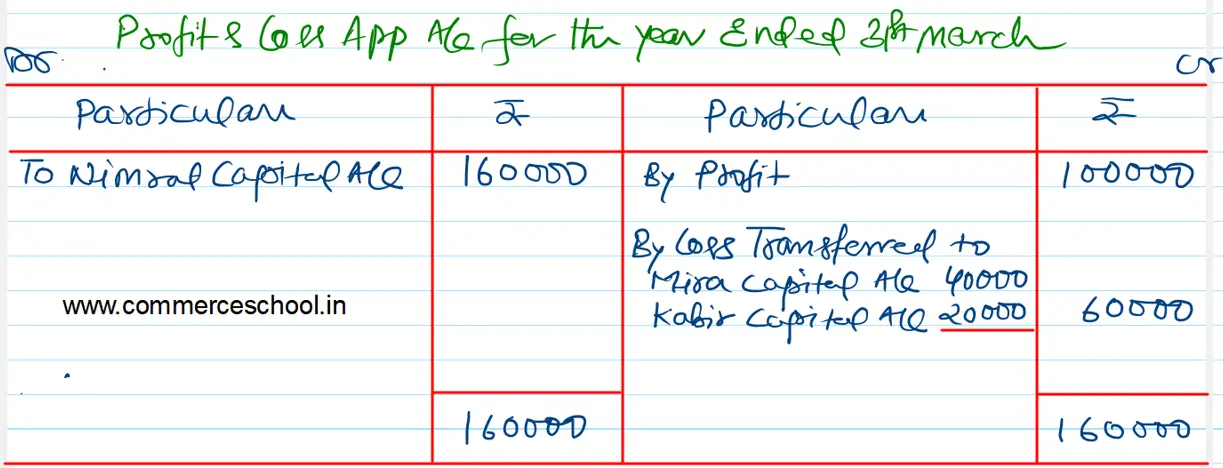 Profit & Loss App A/c for the year Ended 31st March
Dr. Cr
Particulars ₹ Particulars ₹
To Nimral Capital A/c 160000 By Profit 100000
By Loss Transferred to
Mira Capital A/c 40000
www.commerceschool.in Kabir Capital A/c 20000 60000
160000 160000